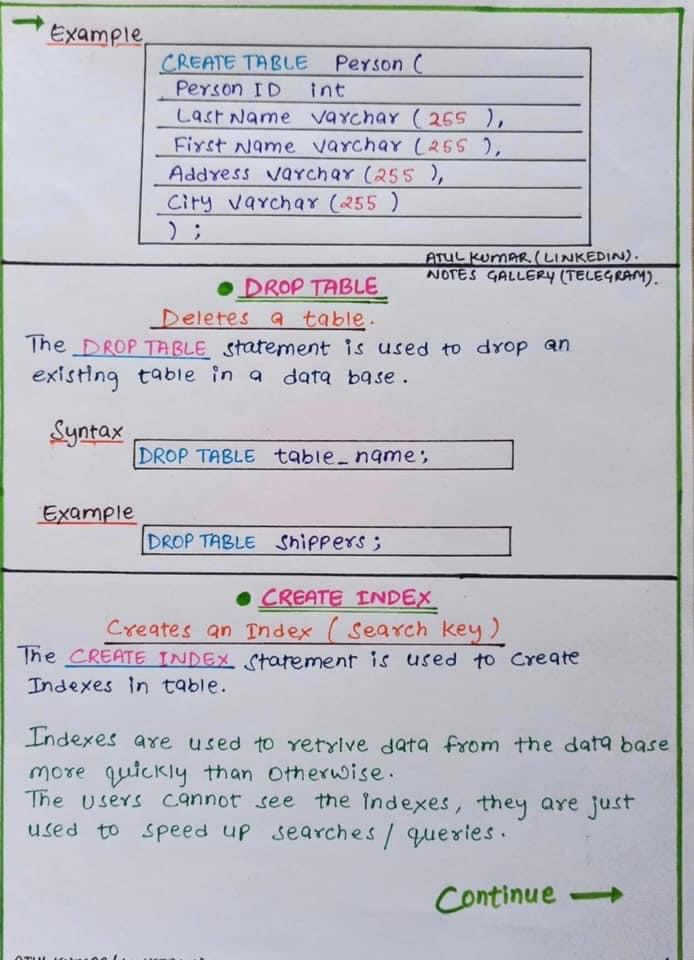 Example
CREATE TABLE Person (
Person ID int
Last Name varchar (255 ),
First Name varchar (255 ),
Address varchar (255 ),
City varchar (255 )
) ;
ATUL KUMAR (LINKEDIN).
NOTES GALLERY (TELEGRAM).
DROP TABLE
Deletes a table.
The DROP TABLE statement is used to drop an
existing table in a data base.
Syntax
DROP TABLE table_name;
Example
DROP TABLE Shippers;
CREATE INDEX
Creates an Index ( Search key )
The CREATE INDEX statement is used to Create
Indexes in table.
Indexes are used to retrive data from the data base
more quickly than otherwise.
The Users cannot see the indexes, they are just
used to speed up searches / queries.
Continue